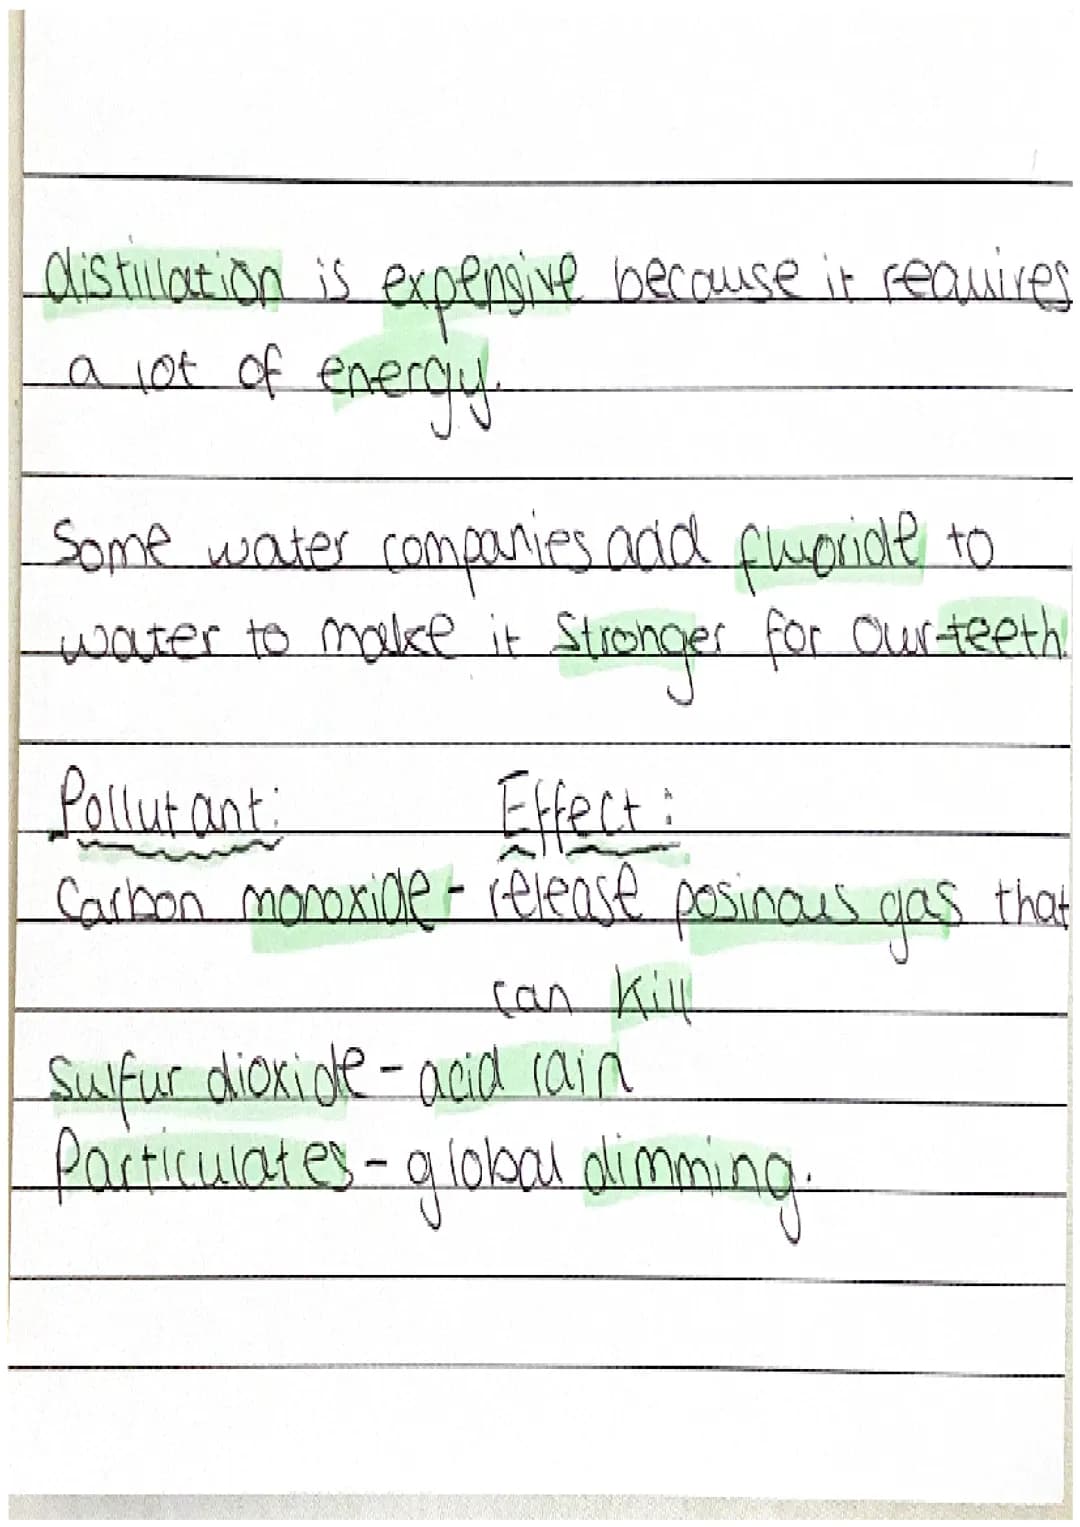 distillation is expensive because it requires
a lot of energy.
Some water companies add fluoride to
water to make it stronger for our teeth.
Pollutant: Effect:
Carbon monoxide - release posinous gas that
can kill
Sulfur dioxide - acid rain
Particulates - global dimming.